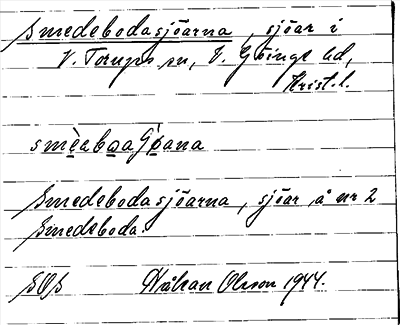 Smedebodasjöarna, sjöar i
V. Torups sn, V. Göinge hd,
Krist. l.
Smedebodasjöarna, sjöar å nr 2
Smedeboda.
SOS Håkan Olsson 1944.